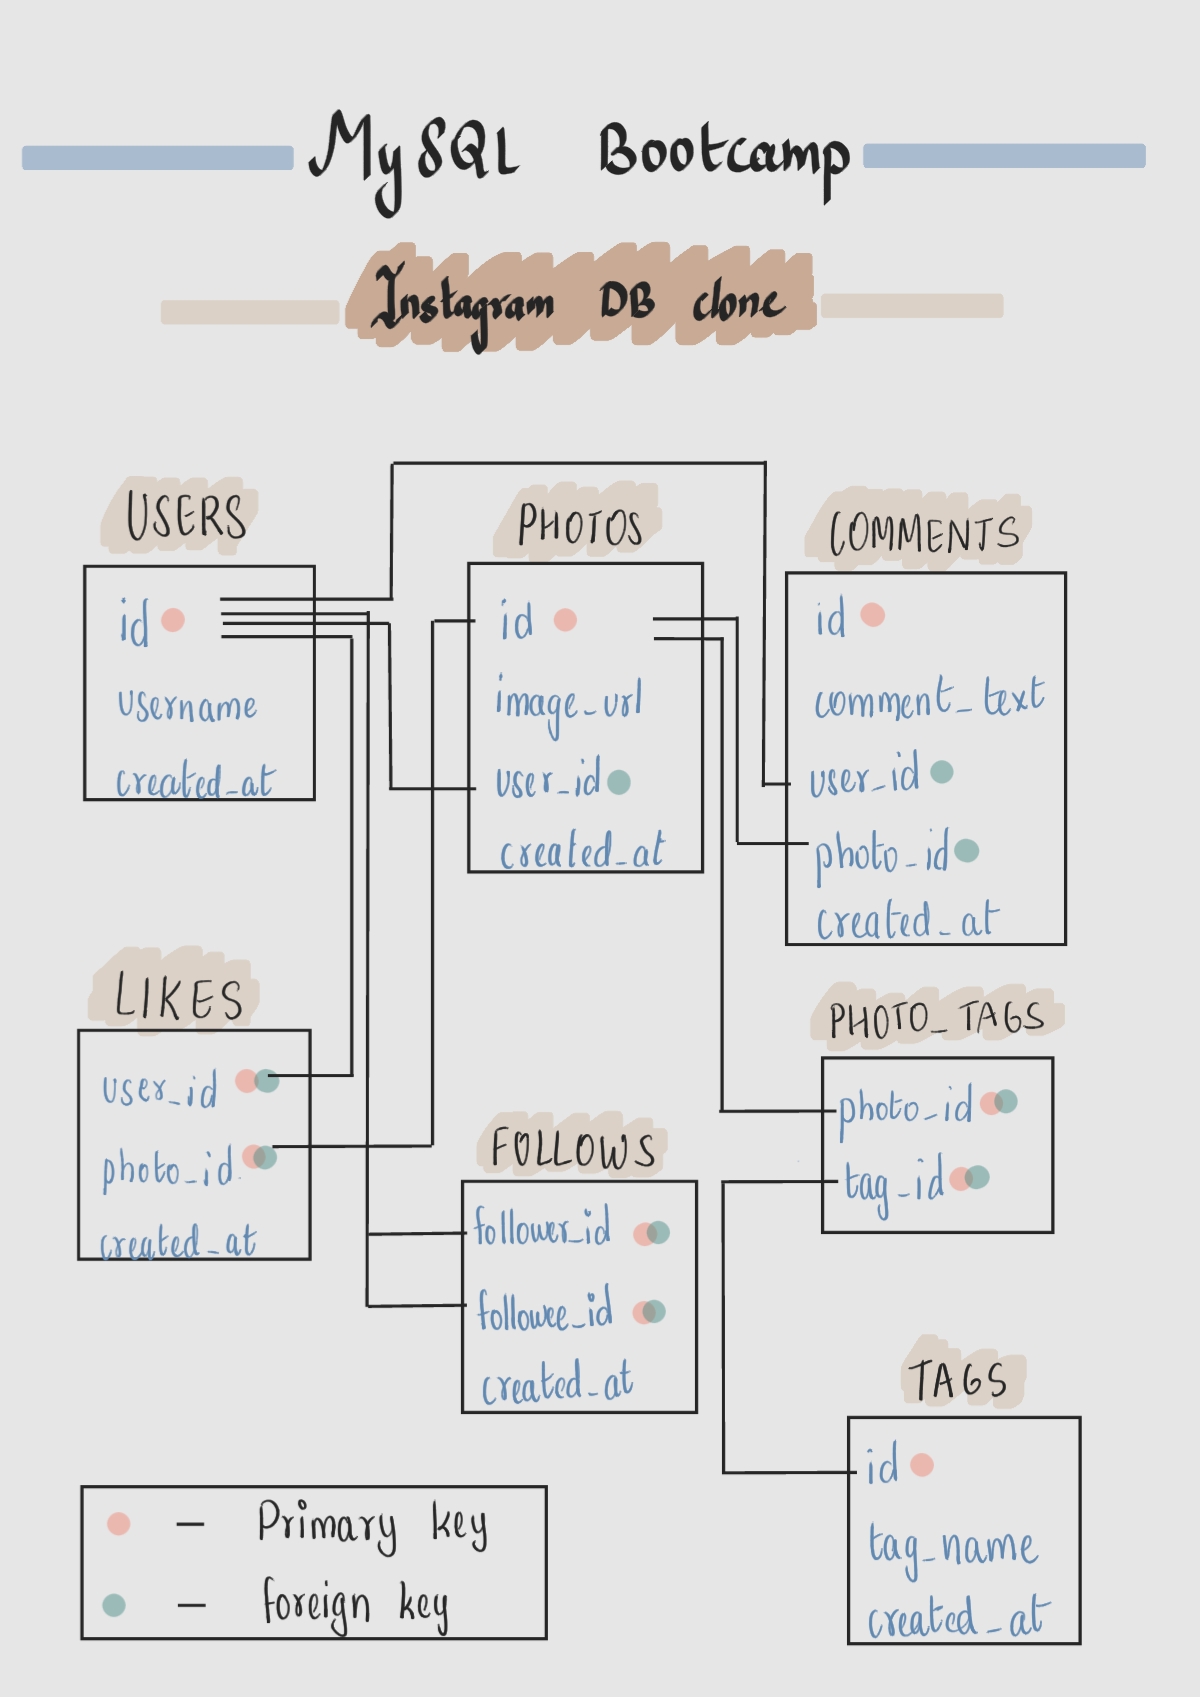 MySQL Bootcamp
Instagram DB clone
USERS
id
username
created_at
PHOTOS
id
image_url
user_id
created_at
COMMENTS
id
comment_text
user_id
photo_id
created_at
LIKES
user_id
photo_id
created_at
FOLLOWS
follower_id
followee_id
created_at
PHOTO_TAGS
photo_id
tag_id
TAGS
id
tag_name
created_at
— Primary key
— foreign key